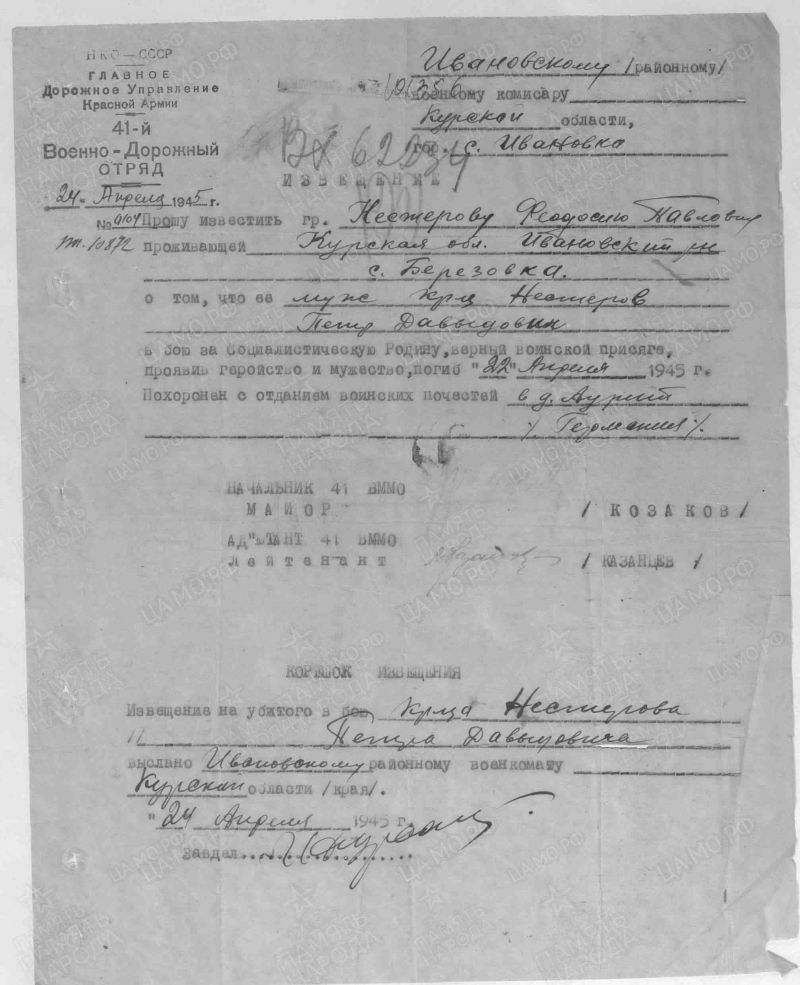 НКО — СССР
ГЛАВНОЕ
Дорожное Управление
Красной Армии
41-й
Военно-Дорожный
ОТРЯД
"24" Апреля 1945 г.
№ 0104
10872
Ивановскому /районному/
военному комисару
Курской области,
с. Ивановка
ИЗВЕЩЕНИЕ
Прошу известить гр. Нестерову Феодосию Павловну
проживающей Курская обл. Ивановский рн
с. Березовка.
о том, что ее муж крц Нестеров
Петр Давыдович
в бою за Социалистическую Родину, верный воинской присяге,
проявив геройство и мужество, погиб "22" Апреля 1945 г.
Похоронен с отданием воинских почестей в д. Аурит
/. Германия /.
НАЧАЛЬНИК 41 ВММО
МАЙОР / КОЗАКОВ /
АД"ЮТАНТ 41 ВММО
Лейтенант / КАЗАНЦЕВ /
КОРЕШОК ИЗВЕЩЕНИЯ
Извещение на убитого в бою крца Нестерова
Петра Давыдовича
выслано Ивановскому районному военкомату
Курской области /края/.
"24 Апреля 1945 г.
ПАМЯТЬ НАРОДА
ЦАМО.РФ